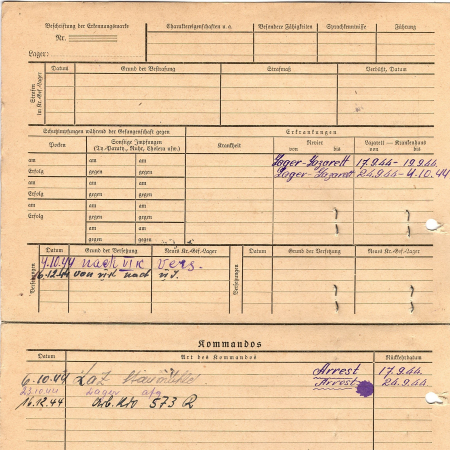 Beschriftung der Erkennungsmarke
Nr.
Lager:
Charaktereigenschaften u. a.
Besondere Fähigkeiten
Sprachkenntnisse
Führung
Strafen im Kr.-Gef.-Lager
Datum
Grund der Bestrafung
Strafmaß
Verbüßt, Datum
Schutzimpfungen während der Gefangenschaft gegen
Erkrankungen
Pocken
Sonstige Impfungen
(Ty-Paraty., Ruhr, Cholera usw.)
Krankheit
Revier
von bis
Lazarett — Krankenhaus
von bis
am am am
Erfolg gegen gegen
am am am
Erfolg gegen gegen
am am am
Erfolg gegen gegen
am am
gegen gegen
Lager-Lazarett 17.9.44 - 19.9.44
Lager-Lazarett 24.9.44 - 4.10.44
Versetzungen
Datum
Grund der Versetzung
Neues Kr.-Gef.-Lager
Versetzungen
Datum
Grund der Versetzung
Neues Kr.-Gef.-Lager
4.10.44 nach VIK Vers.
16.12.44 von VIK nach VIJ.
Kommandos
Datum
Art des Kommandos
Rückkehrdatum
6.10.44 Laz. Arrest 17.9.44
23.10.44 Lager Arrest 24.9.44
16.12.44 Arb. Kdo 573 R